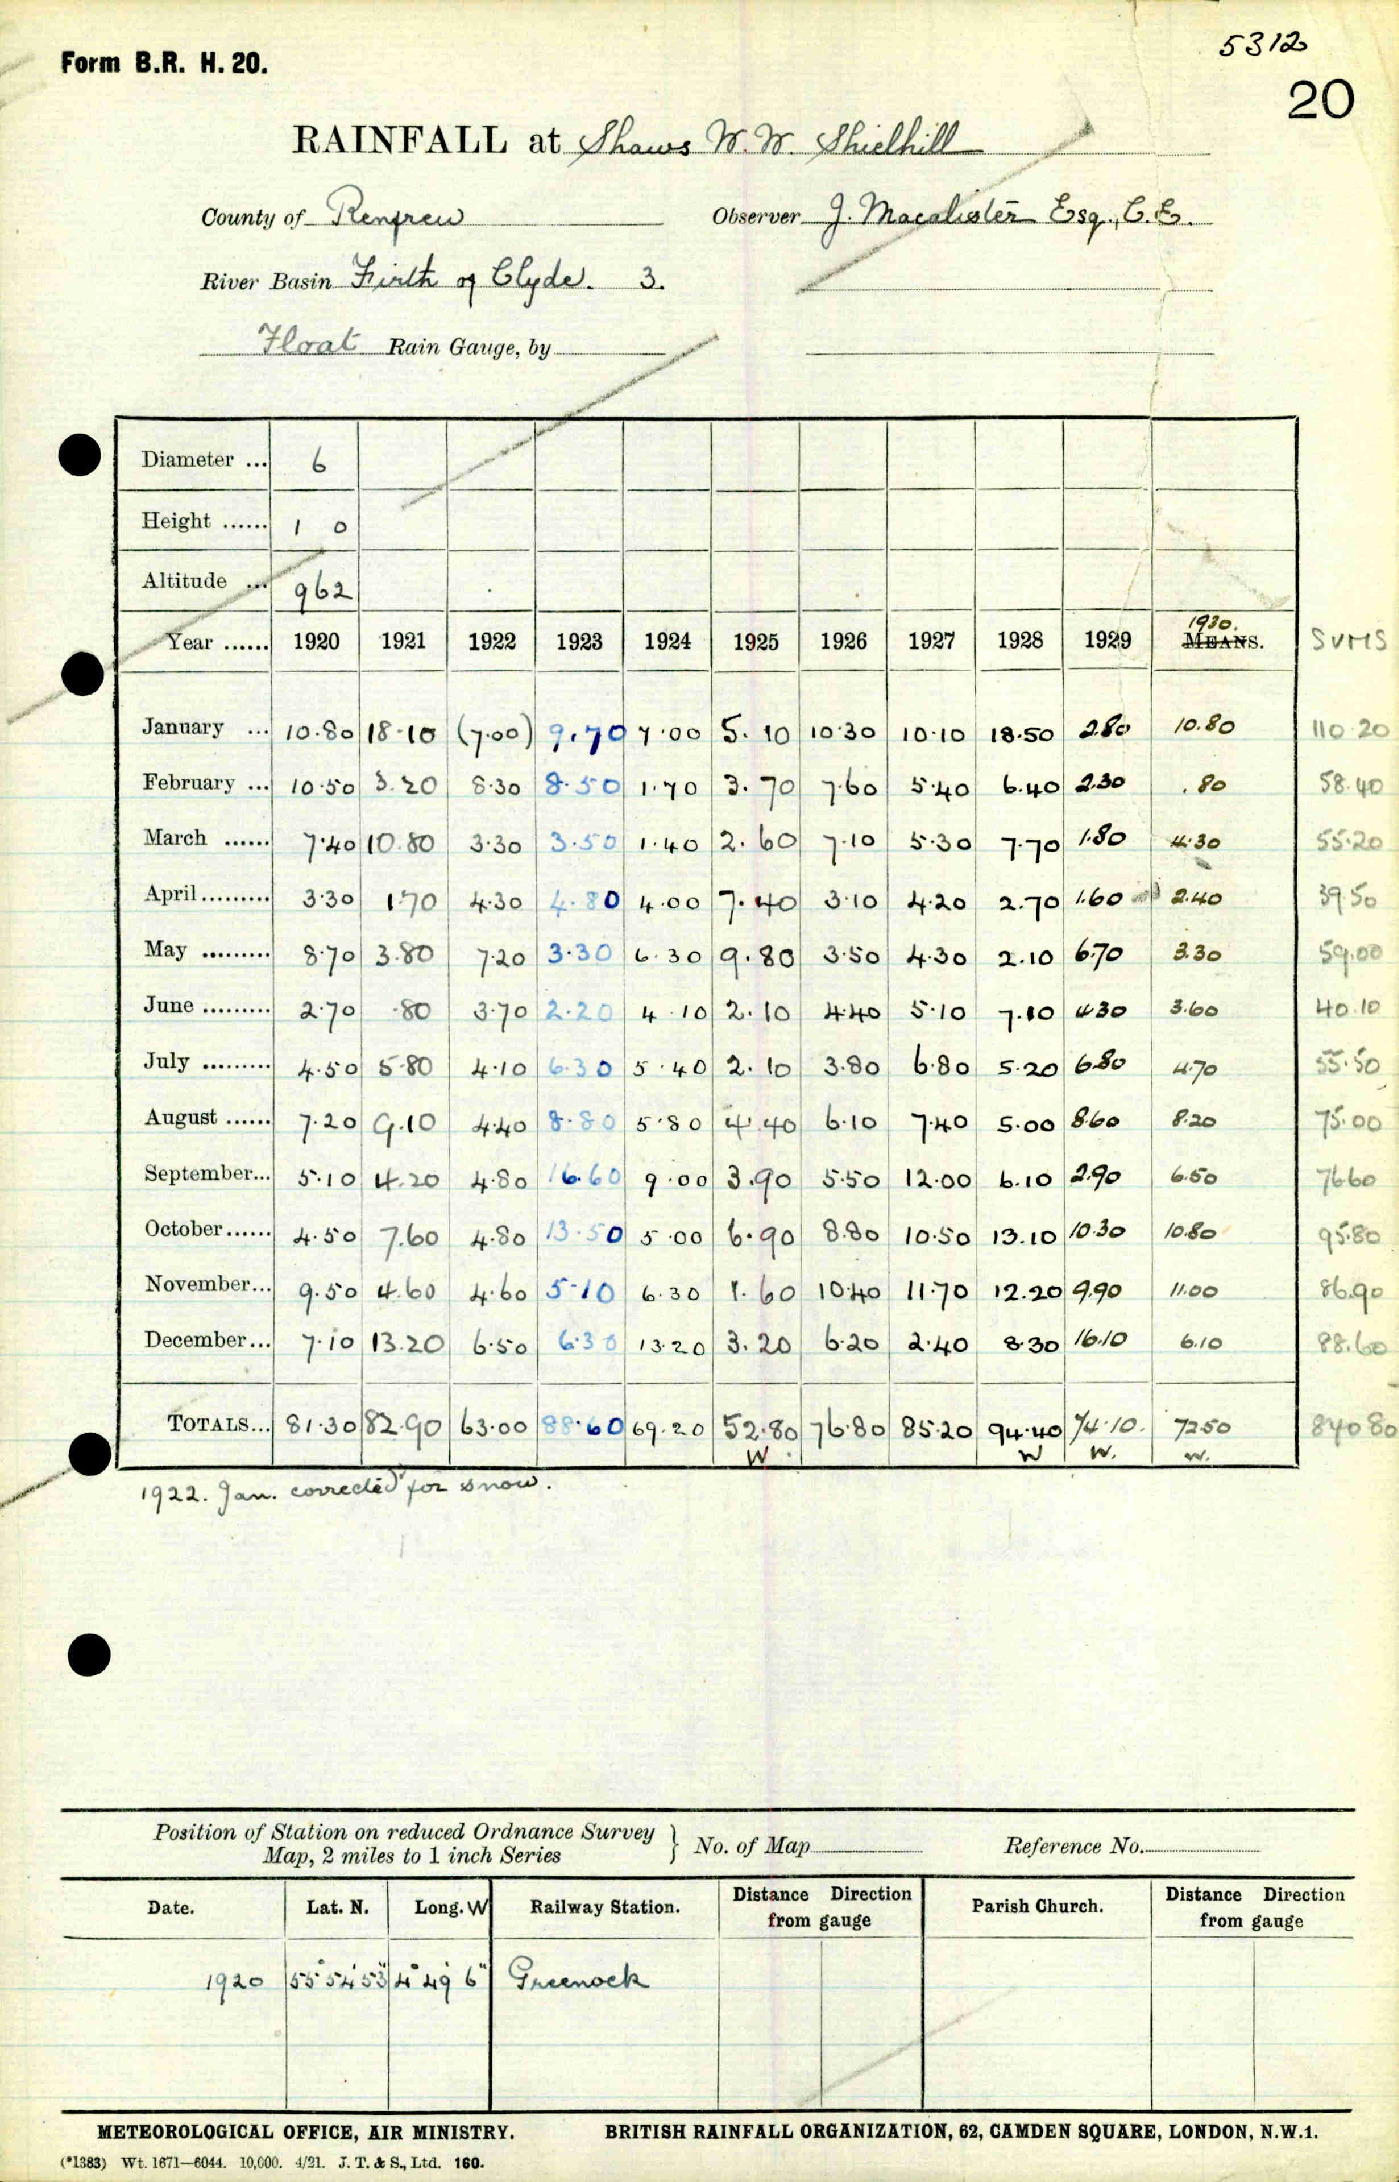 Form B.R. H. 20.
5312
20
RAINFALL at Shaws W.W. Shielhill
County of Renfrew Observer J. Macalister Esq., C.E.
River Basin Firth of Clyde. 3.
Float Rain Gauge, by
Diameter ... 6
Height ...... 1 0
Altitude ... 962
Year ...... 1920 1921 1922 1923 1924 1925 1926 1927 1928 1929 1930. MEANS. SUMS
January ... 10.80 18.10 (7.00) 9.70 7.00 5.10 10.30 10.10 18.50 2.80 10.80 110.20
February ... 10.50 3.20 8.30 8.50 1.70 3.70 7.60 5.40 6.40 2.30 .80 58.40
March ...... 7.40 10.80 3.30 3.50 1.40 2.60 7.10 5.30 7.70 1.80 4.30 55.20
April ......... 3.30 1.70 4.30 4.80 4.00 7.40 3.10 4.20 2.70 1.60 2.40 39.50
May ......... 8.70 3.80 7.20 3.30 6.30 9.80 3.50 4.30 2.10 6.70 3.30 59.00
June ......... 2.70 .80 3.70 2.20 4.10 2.10 4.40 5.10 7.10 4.30 3.60 40.10
July ......... 4.50 5.80 4.10 6.30 5.40 2.10 3.80 6.80 5.20 6.80 4.70 55.50
August ...... 7.20 9.10 4.40 8.80 5.80 4.40 6.10 7.40 5.00 8.60 8.20 75.00
September... 5.10 4.20 4.80 16.60 9.00 3.90 5.50 12.00 6.10 2.90 6.50 76.60
October...... 4.50 7.60 4.80 13.50 5.00 6.90 8.80 10.50 13.10 10.30 10.80 95.80
November... 9.50 4.60 4.60 5.10 6.30 1.60 10.40 11.70 12.20 9.90 11.00 86.90
December... 7.10 13.20 6.50 6.30 13.20 3.20 6.20 2.40 8.30 16.10 6.10 88.60
TOTALS... 81.30 82.90 63.00 88.60 69.20 52.80 76.80 85.20 94.40 74.10. 72.50 840.80
W W W. W.
1922. Jan. corrected for snow.
Position of Station on reduced Ordnance Survey
Map, 2 miles to 1 inch Series } No. of Map Reference No.
Date. Lat. N. Long. W Railway Station. Distance Direction from gauge Parish Church. Distance Direction from gauge
1920 55° 54' 53" 4° 49' 6" Greenock
METEOROLOGICAL OFFICE, AIR MINISTRY. BRITISH RAINFALL ORGANIZATION, 62, CAMDEN SQUARE, LONDON, N.W.1.
(*1383) Wt. 1671—6044. 10,000. 4/21. J. T. & S., Ltd. 160.